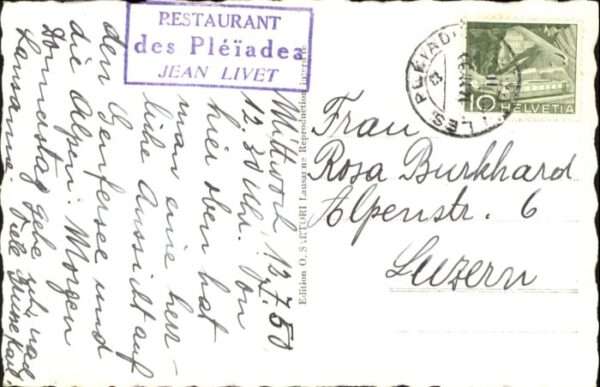 RESTAURANT
des Pléïades
JEAN LIVET
LES PLÉIAD
10 HELVETIA
Mittwoch 12.7.50
12.30 Uhr. Von
hier oben hat
man eine herr-
liche Aussicht auf
den Genfersee und
die Alpen. Morgen
Donnerstag gehe ich nach
Lausanne
Edition O. SARTORI Lausanne Reproduction interdite
Frau
Rosa Burkhard
Alpenstr. 6
Luzern